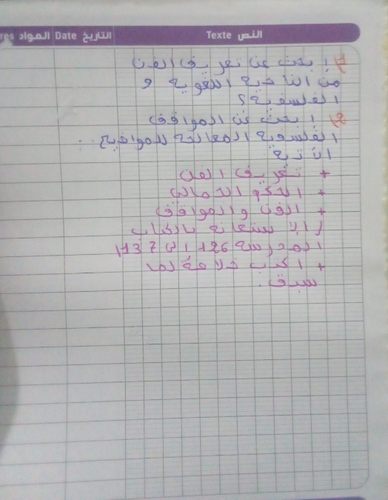 المواد res
التاريخ Date
النص Texte
1) ابحث عن تعريف الفن
من الناحية اللغوية و
الفلسفية؟
2) ابحث عن المواقف
الفلسفية المعالجة للمواضيع..
الآتية
+ تعريف الفن
+ الحكم الجمالي
+ الفن والمواقف
/ الاستعانة بالكتاب
المدرسة 126 الى
+ اكتب خلاصة لما
سبق.